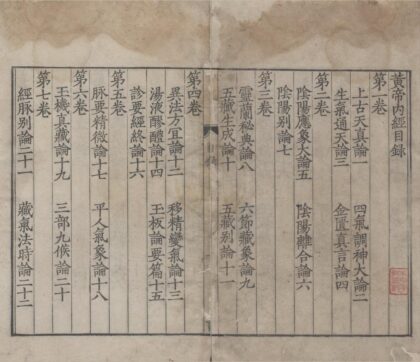 黃帝內經目錄
第一卷
上古天真論一 四氣調神大論二
生氣通天論三 金匱真言論四
第二卷
陰陽應象大論五 陰陽離合論六
陰陽別論七
第三卷
靈蘭秘典論八 六節藏象論九
五藏生成論十 五藏别論十一
第四卷
異法方宜論十二 移精變氣論十三
湯液醪醴論十四 玉板論要篇十五
診要經終論十六
第五卷
脉要精微論十七 平人氣象論十八
第六卷
玉機真藏論十九 三部九候論二十
第七卷
經脉别論二十一 藏氣法時論二十二